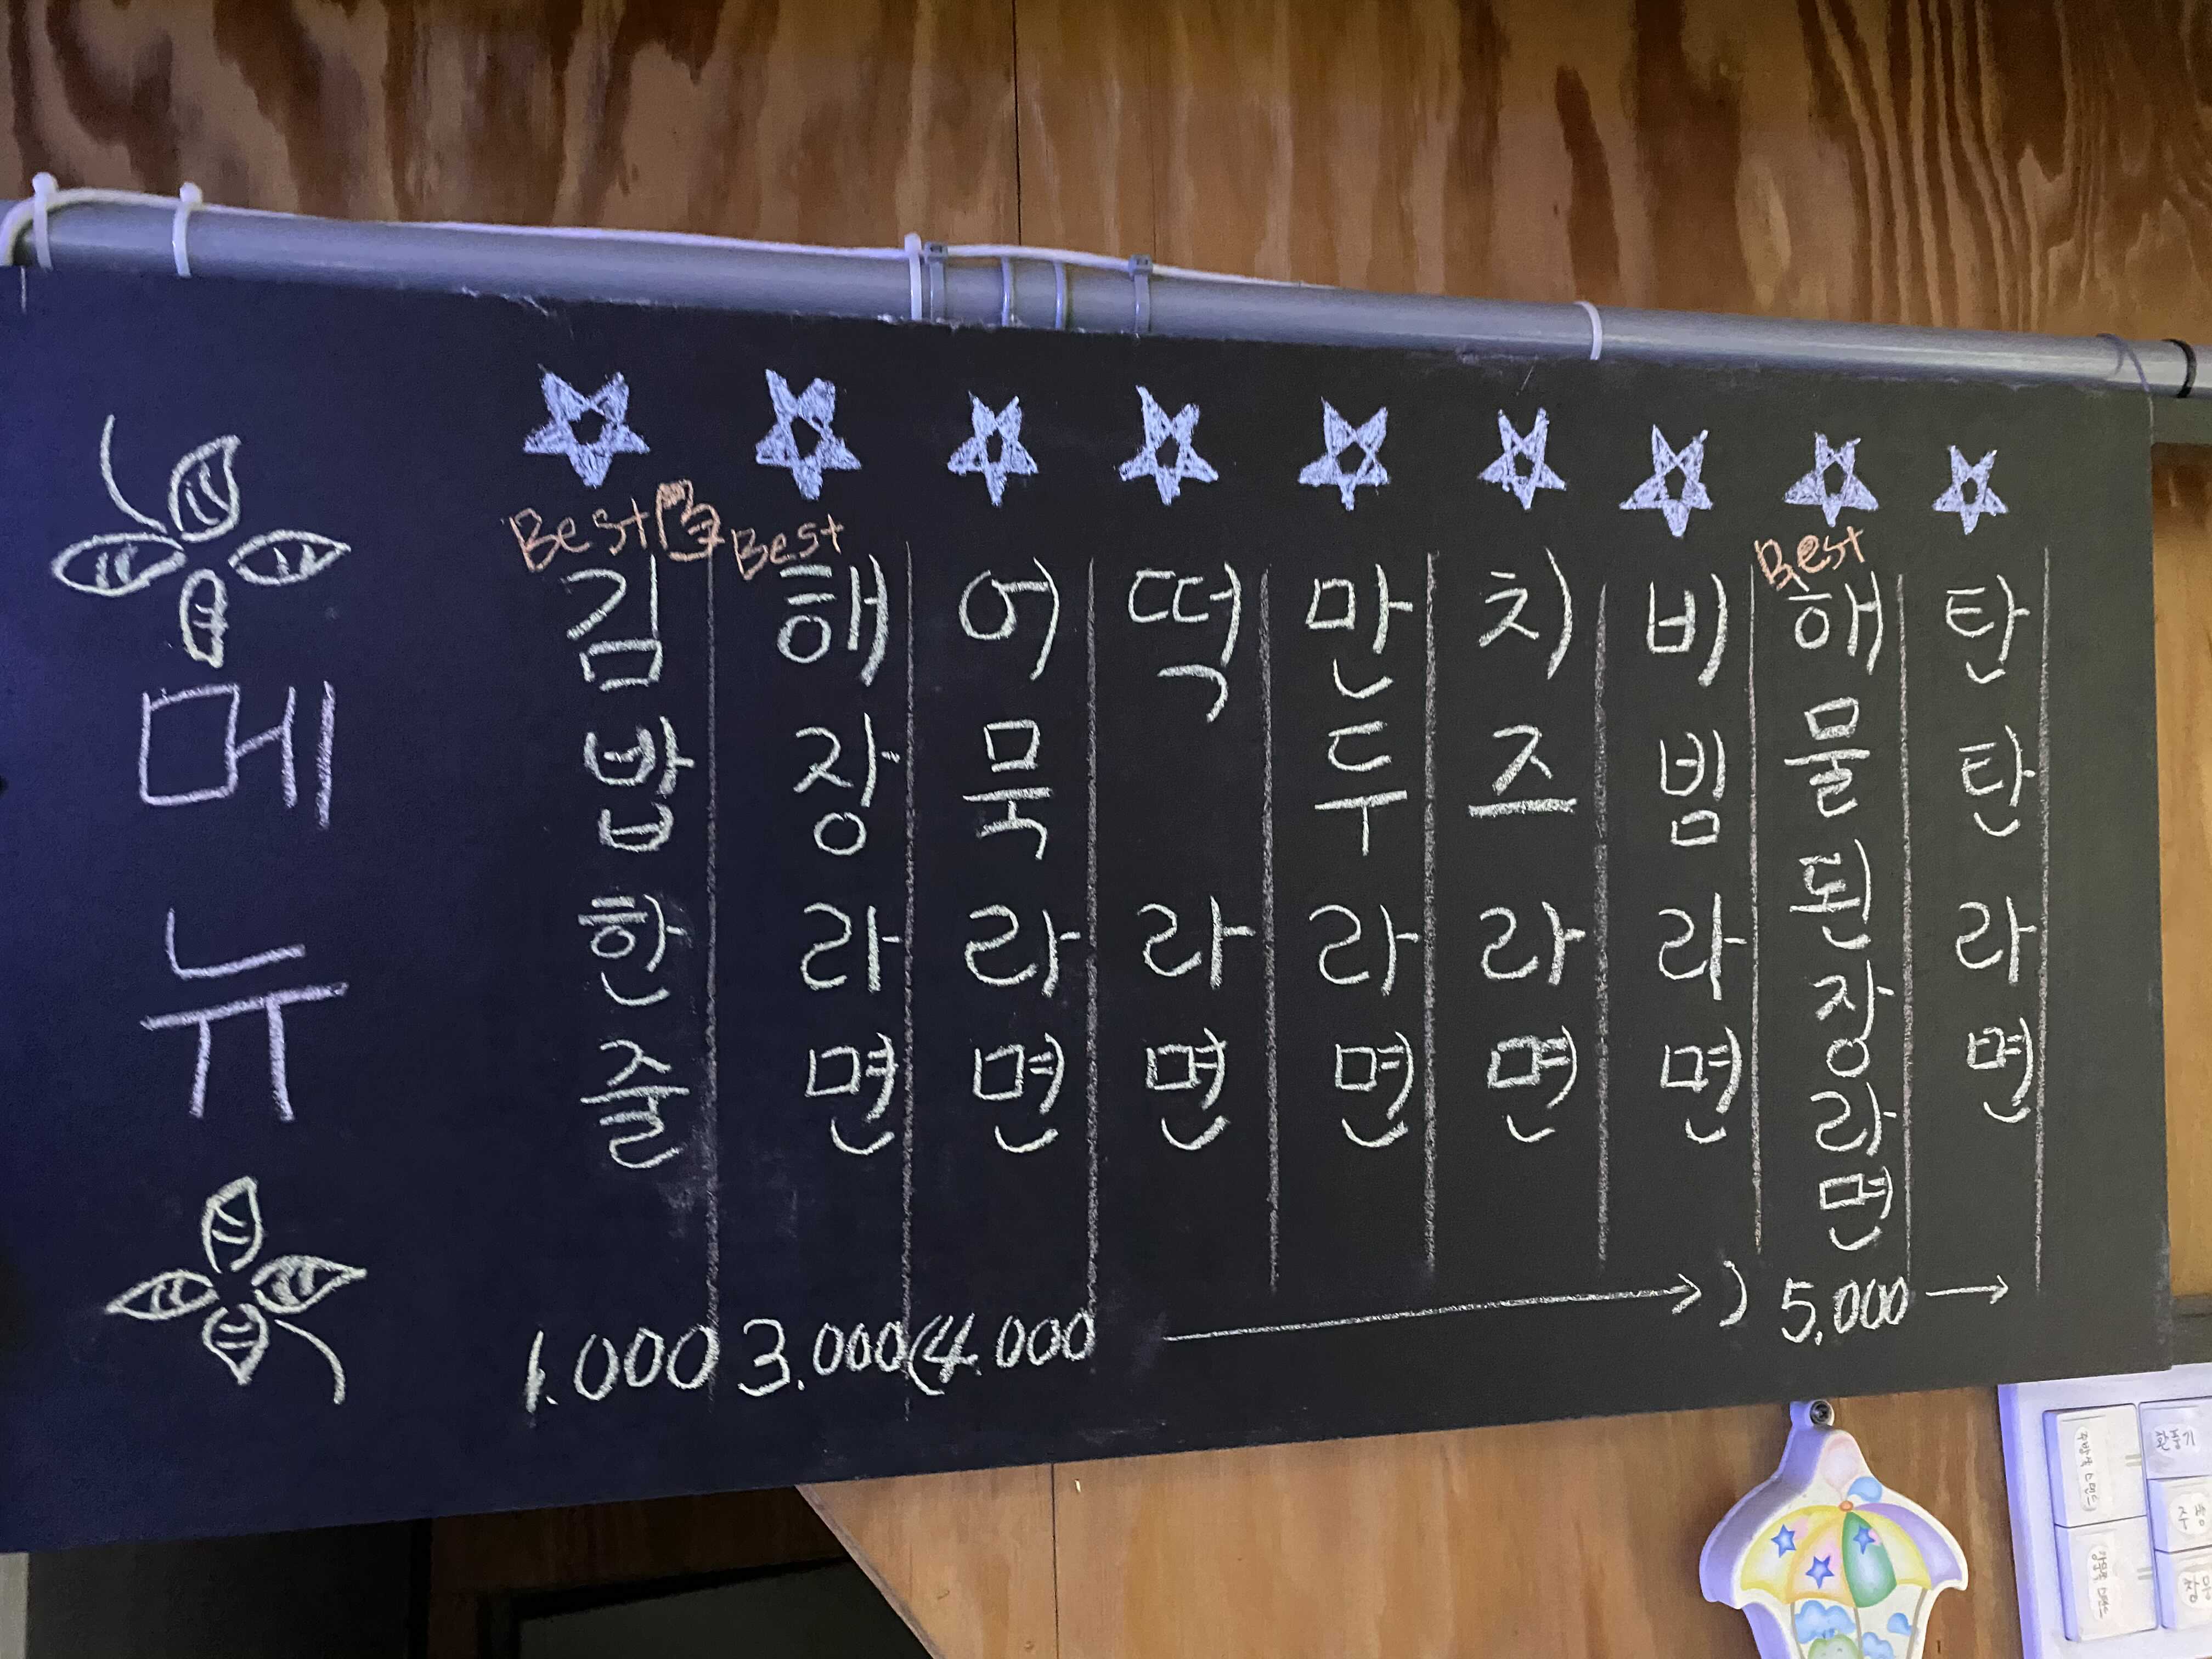 메뉴
Best
김밥한줄
1.000
Best
해장라면
3.000
어묵라면
(4.000
떡라면
만두라면
치즈라면
비빔라면
)
Best
해물된장라면
5.000
탄탄라면
환풍기